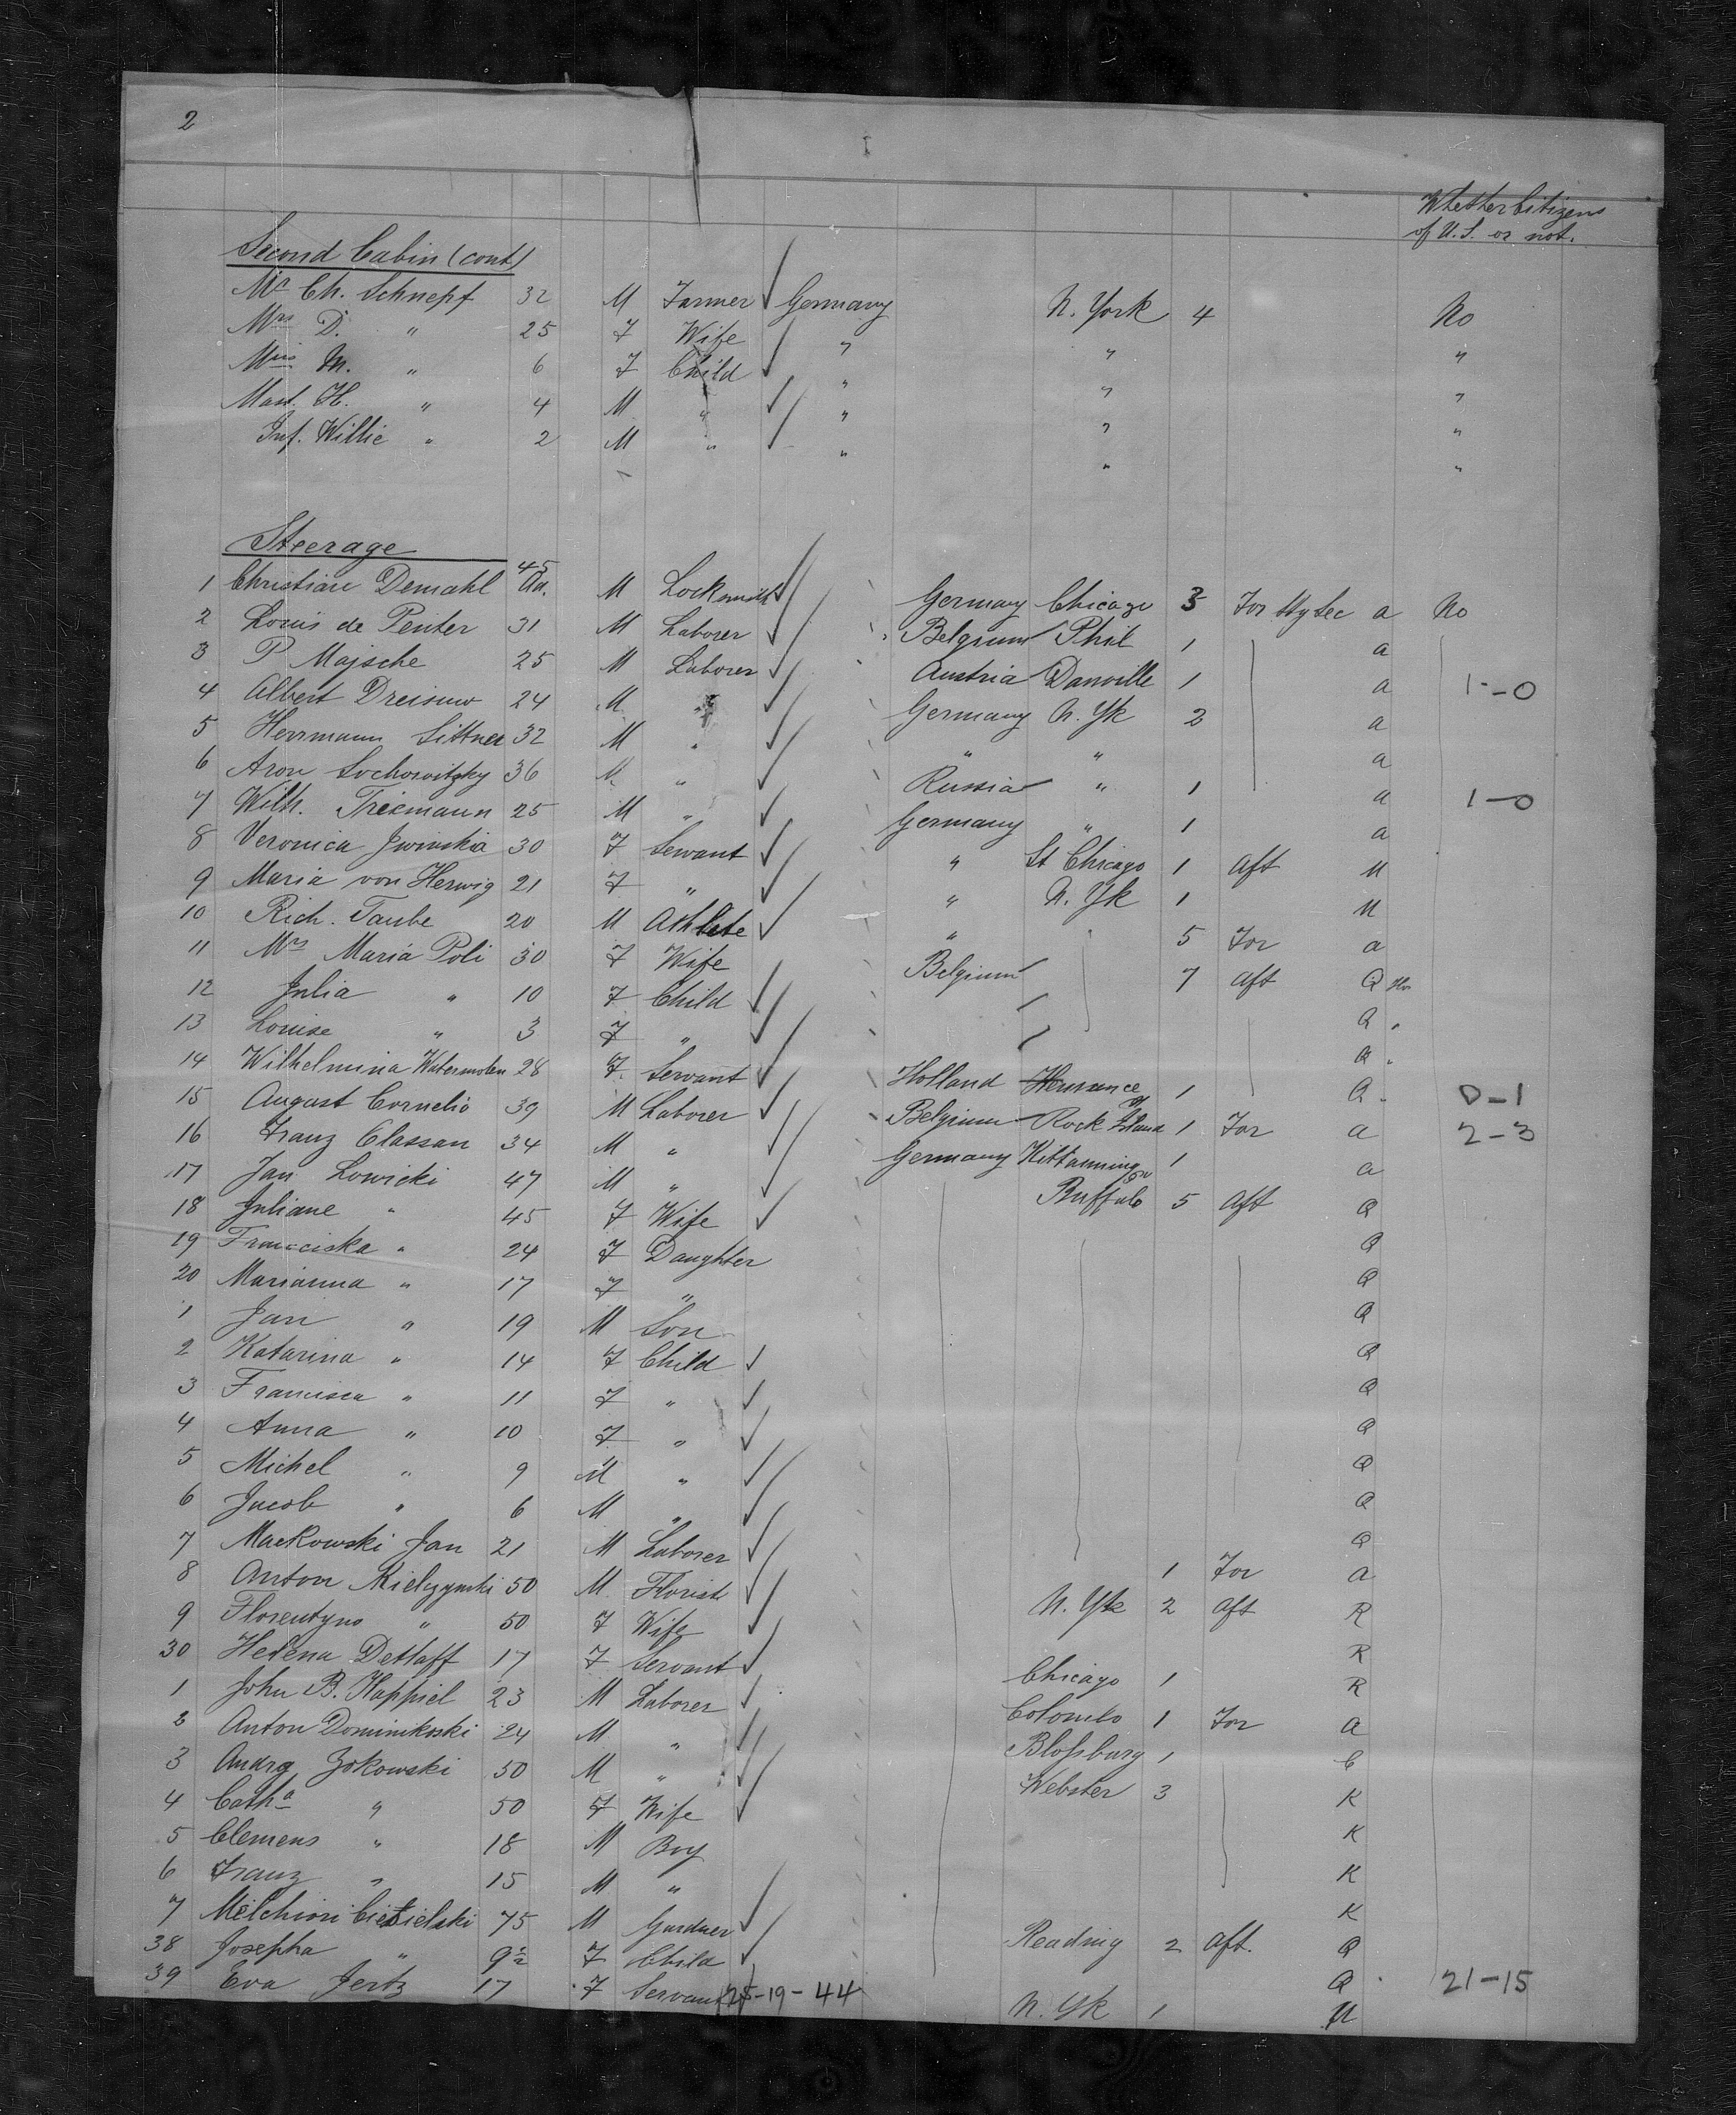 2
Whether Citizens
of U.S. or not.
Second Cabin (cont)
Mr Ch. Schnepf 32 M Farmer Germany N. York 4 No
Mrs D. " 25 F Wife " " "
Miss M. " 6 F Child " " "
Mast. H. " 4 M " " " "
Inf. Willie " 2 M " " " "
Steerage
45
1 Christian Demahl Ad. M Locksmith Germany Chicago 3 For a No
2 Louis de Penter 31 M Laborer Belgium Phil 1 a
3 P Majsche 25 M Laborer Austria Danville 1 a 1-0
4 Albert 24 M " Germany N. Yk 2 a
5 Herrmann Sittner 32 M " " " a
6 Aron Sochorvitzky 36 M " Russia " 1 a 1-0
7 Wilh. Triemann 25 M " Germany " 1 a
8 Veronica 30 F Servant " St Chicago 1 Aft U
9 Maria von Herwig 21 F " " N. Yk 1 U
10 Rich. Taube 20 M Athlete " 5 For a
11 Mrs Maria Poli 30 F Wife Belgium 7 Aft Q
12 Julia " 10 F Child Q
13 Louise " 3 F " Q
14 Wilhelmina Watermolen 28 F. Servant Holland 1 Q 0-1
15 August Cornelio 39 M Laborer Belgium Rock Island 1 For a 2-3
16 Franz Classan 34 M " Germany Kittanning 1 a
17 Jan Lowicki 47 M " Buffalo 5 Aft Q
18 Juliane " 45 F Wife Q
19 Franciska " 24 F Daughter Q
20 Marianna " 17 F " Q
1 Jan " 19 M Son Q
2 Katarina " 14 F Child Q
3 Francisca " 11 F " Q
4 Anna " 10 F " Q
5 Michel " 9 M " Q
6 Jacob " 6 M " Q
7 Mackowski Jan 21 M Laborer 1 For a
8 Anton Kielczynski 50 M Florist N. Yk 2 Aft R
9 Florentyna " 50 F Wife R
30 Helena Detlaff 17 F Servant Chicago 1 R
1 John B. Happiel 23 M Laborer Colombo 1 For a
2 Anton Dominikoski 24 M " Blossburg 1 C
3 Andrz Zokowski 50 M " Webster 3 K
4 Catha " 50 F Wife K
5 Clemens " 18 M Boy K
6 Franz " 15 M " K
7 Melchiori 75 M Gardner Reading 2 Aft. Q
38 Josepha " 9 F Child Q 21-15
39 Eva Jertz 17 F Servant 25-19-44 N. Yk 1 U